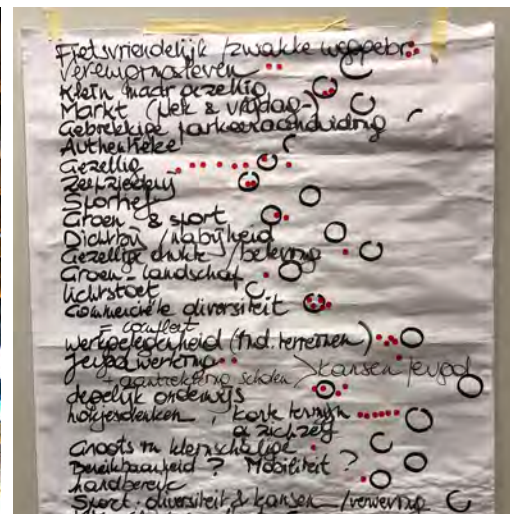 Fietsvriendelijk / zwakke weggebr.
Verenigingsleven
Klein maar gezellig
Markt (wek & vrijdag-)
Gebrekkige parkeeraanduiding
Authentieke
Gezellig
Sporthel
Groen & sport
Dichtbij / nabijheid
Gezellige drukte / beleving
Groen-landschap
lichtstoet
Commerciële diversiteit
= comfort
werkgelegenheid (ind. terreinen)
Jeugdwerking
+ aantrekking scholen > kansen jeugd
degelijk onderwijs
hokjesdenken, korte termijn
Groots in kleinschalige
Bereikbaarheid ? Mobiliteit ?
handbereik
Sport: diversiteit & kansen / verwering